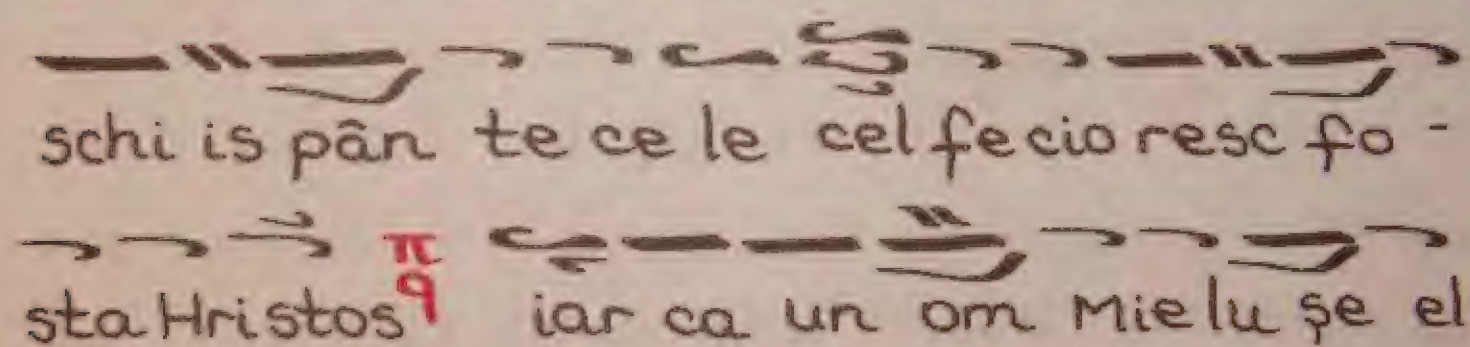 schi is pân te ce le cel fe cio resc fo -
sta Hri stos π q iar ca un om Mie lu șe el